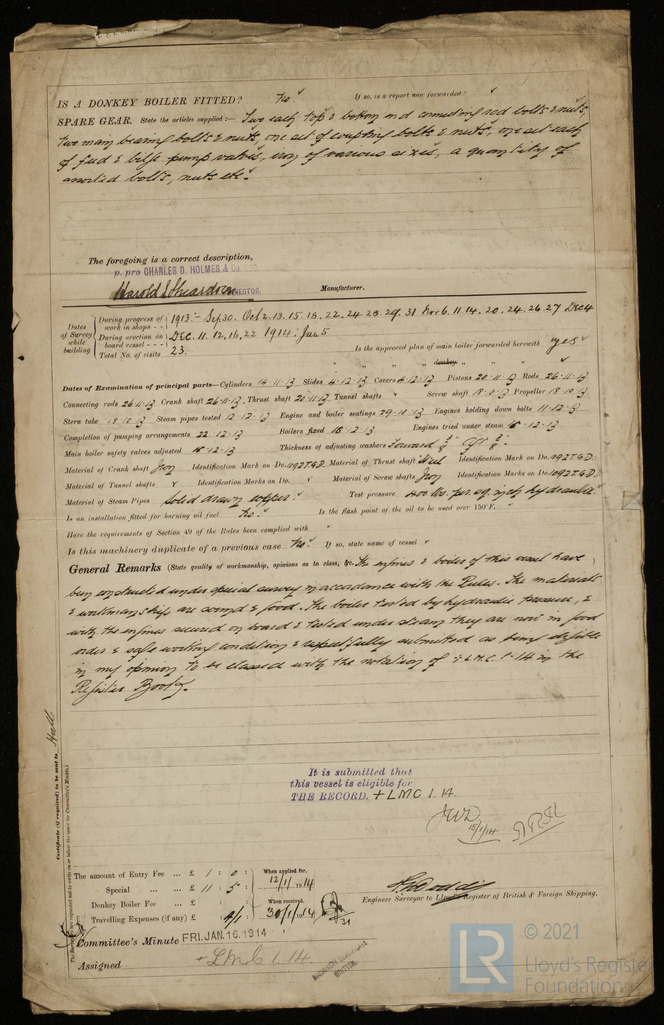 IS A DONKEY BOILER FITTED? No If so, is a report now forwarded?
SPARE GEAR. State the articles supplied:— Two each top & bottom end connecting rod bolts & nuts,
two main bearing bolts & nuts, one set of coupling bolts & nuts, one set each
of feed & bilge pump valves, iron of various sizes, a quantity of
assorted bolts, nuts etc.
The foregoing is a correct description,
p. pro CHARLES D. HOLMES & Co.
Harold Sheardown DIRECTOR. Manufacturer.
Dates of Survey while building
During progress of work in shops - - 1913:- Sep 30. Oct 2. 13. 15. 18. 22. 24. 28. 29. 31 Nov 6. 11. 14. 20. 24. 26. 27 Dec 4
During erection on board vessel - - - Dec. 11. 12. 16. 22 1914: Jan 5
Total No. of visits 23. Is the approved plan of main boiler forwarded herewith yes
" " " donkey " " "
Dates of Examination of principal parts—Cylinders 14.11.13 Slides 4.12.13 Covers 4.12.13 Pistons 20.11.13 Rods 26.11.13
Connecting rods 26.11.13 Crank shaft 26.11.13 Thrust shaft 20.11.13 Tunnel shafts Screw shaft Propeller
Stern tube Steam pipes tested 12.12.13 Engine and boiler seatings 29.10.13 Engines holding down bolts 11.12.13
Completion of pumping arrangements 22.12.13 Boilers fixed 12.13 Engines tried under steam 12.13
Main boiler safety valves adjusted 12.13 Thickness of adjusting washers Forward Aft
Material of Crank shaft Iron Identification Mark on Do. 1092 T.G.D. Material of Thrust shaft Steel Identification Mark on Do. 1092 T.G.D.
Material of Tunnel shafts Identification Marks on Do. Material of Screw shafts Iron Identification Marks on Do. 1092 T.G.D.
Material of Steam Pipes Solid drawn copper. Test pressure 400 lbs. per sq. inch hydraulic
Is an installation fitted for burning oil fuel No. Is the flash point of the oil to be used over 150°F.
Have the requirements of Section 49 of the Rules been complied with
Is this machinery duplicate of a previous case No. If so, state name of vessel
General Remarks (State quality of workmanship, opinions as to class, &c. The engines & boiler of this vessel have
been constructed under special survey in accordance with the Rules. The materials
& workmanship are sound & good. The boiler tested by hydraulic pressure, &
with the engines secured on board & tested under steam they are now in good
order & safe working condition & respectfully submitted as being eligible
in my opinion to be classed with the notation of + L.M.C. 1.14 in the
Register Book.
Certificate (if required) to be sent to Hull
It is submitted that
this vessel is eligible for
THE RECORD. + LMC 1.14.
JWD
15/1/14
The amount of Entry Fee ... £ 1 : 0 : When applied for,
Special ... £ 11 : 5 : 12/1/1914
Donkey Boiler Fee ... £ : : When received,
Travelling Expenses (if any) £ : 4/1 30/1/1914
Engineer Surveyor to Lloyd's Register of British & Foreign Shipping.
Committee's Minute FRI. JAN. 16. 1914
Assigned + LMC 1.14
© 2021
Lloyd's Register
Foundation
LR